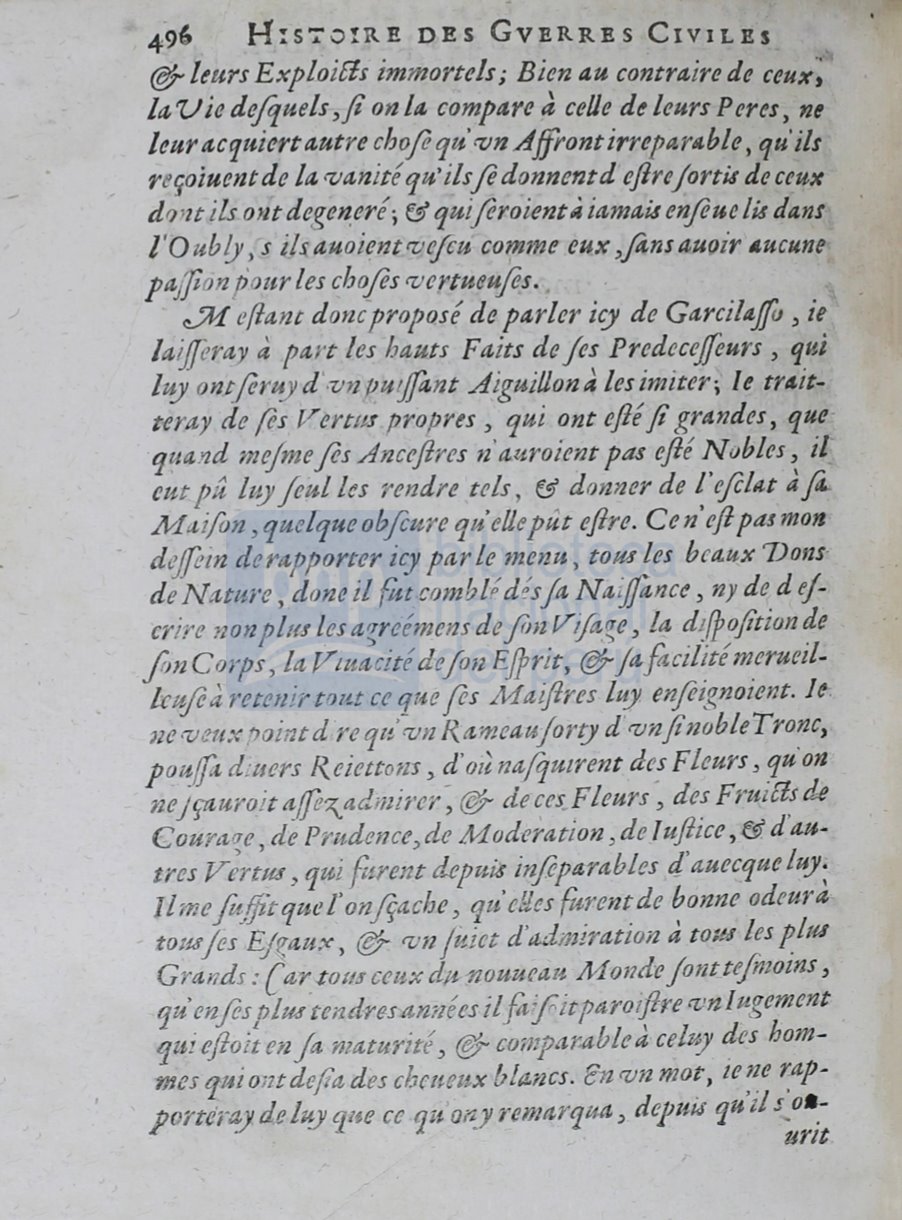 496 HISTOIRE DES GVERRES CIVILES
& leurs Exploicts immortels; Bien au contraire de ceux,
la Vie desquels, si on la compare à celle de leurs Peres, ne
leur acquiert autre chose qu'vn Affront irreparable, qu'ils
reçoiuent de la vanité qu'ils se donnent d estre sortis de ceux
dont ils ont degeneré; & qui seroient à iamais enseue lis dans
l'Oubly, s ils auoient vescu comme eux, sans auoir aucune
passion pour les choses vertueuses.
M estant donc proposé de parler icy de Garcilasso, ie
laisseray à part les hauts Faits de ses Predecesseurs, qui
luy ont seruy d vn puissant Aiguillon à les imiter; Ie trait-
teray de ses Vertus propres, qui ont esté si grandes, que
quand mesme ses Ancestres n'auroient pas esté Nobles, il
eut pû luy seul les rendre tels, & donner de l'esclat à sa
Maison, quelque obscure qu'elle pût estre. Ce n'est pas mon
dessein de rapporter icy par le menu, tous les beaux Dons
de Nature, done il fut comblé dés sa Naissance, ny de d es-
crire non plus les agreémens de son Visage, la disposition de
son Corps, la Viuacité de son Esprit, & sa facilité merueil-
leuse à retenir tout ce que ses Maistres luy enseignoient. Ie
ne veux point dire qu'vn Rameau sorty d vn si noble Tronc,
poussa diuers Reiettons, d'où nasquirent des Fleurs, qu on
ne sçauroit assez admirer, & de ces Fleurs, des Fruicts de
Courage, de Prudence, de Moderation, de Iustice, & d'au-
tres Vertus, qui furent depuis inseparables d'auecque luy.
Il me suffit que l'on sçache, qu'elles furent de bonne odeur à
tous ses Esgaux, & vn suiet d'admiration à tous les plus
Grands: Car tous ceux du nouueau Monde sont tesmoins,
qu'en ses plus tendres années il faisoit paroistre vn Iugement
qui estoit en sa maturité, & comparable à celuy des hom-
mes qui ont desia des cheueux blancs. En vn mot, ie ne rap-
porteray de luy que ce qu'on y remarqua, depuis qu'il s'ou-
urit
biblioteca
nacional
del perú